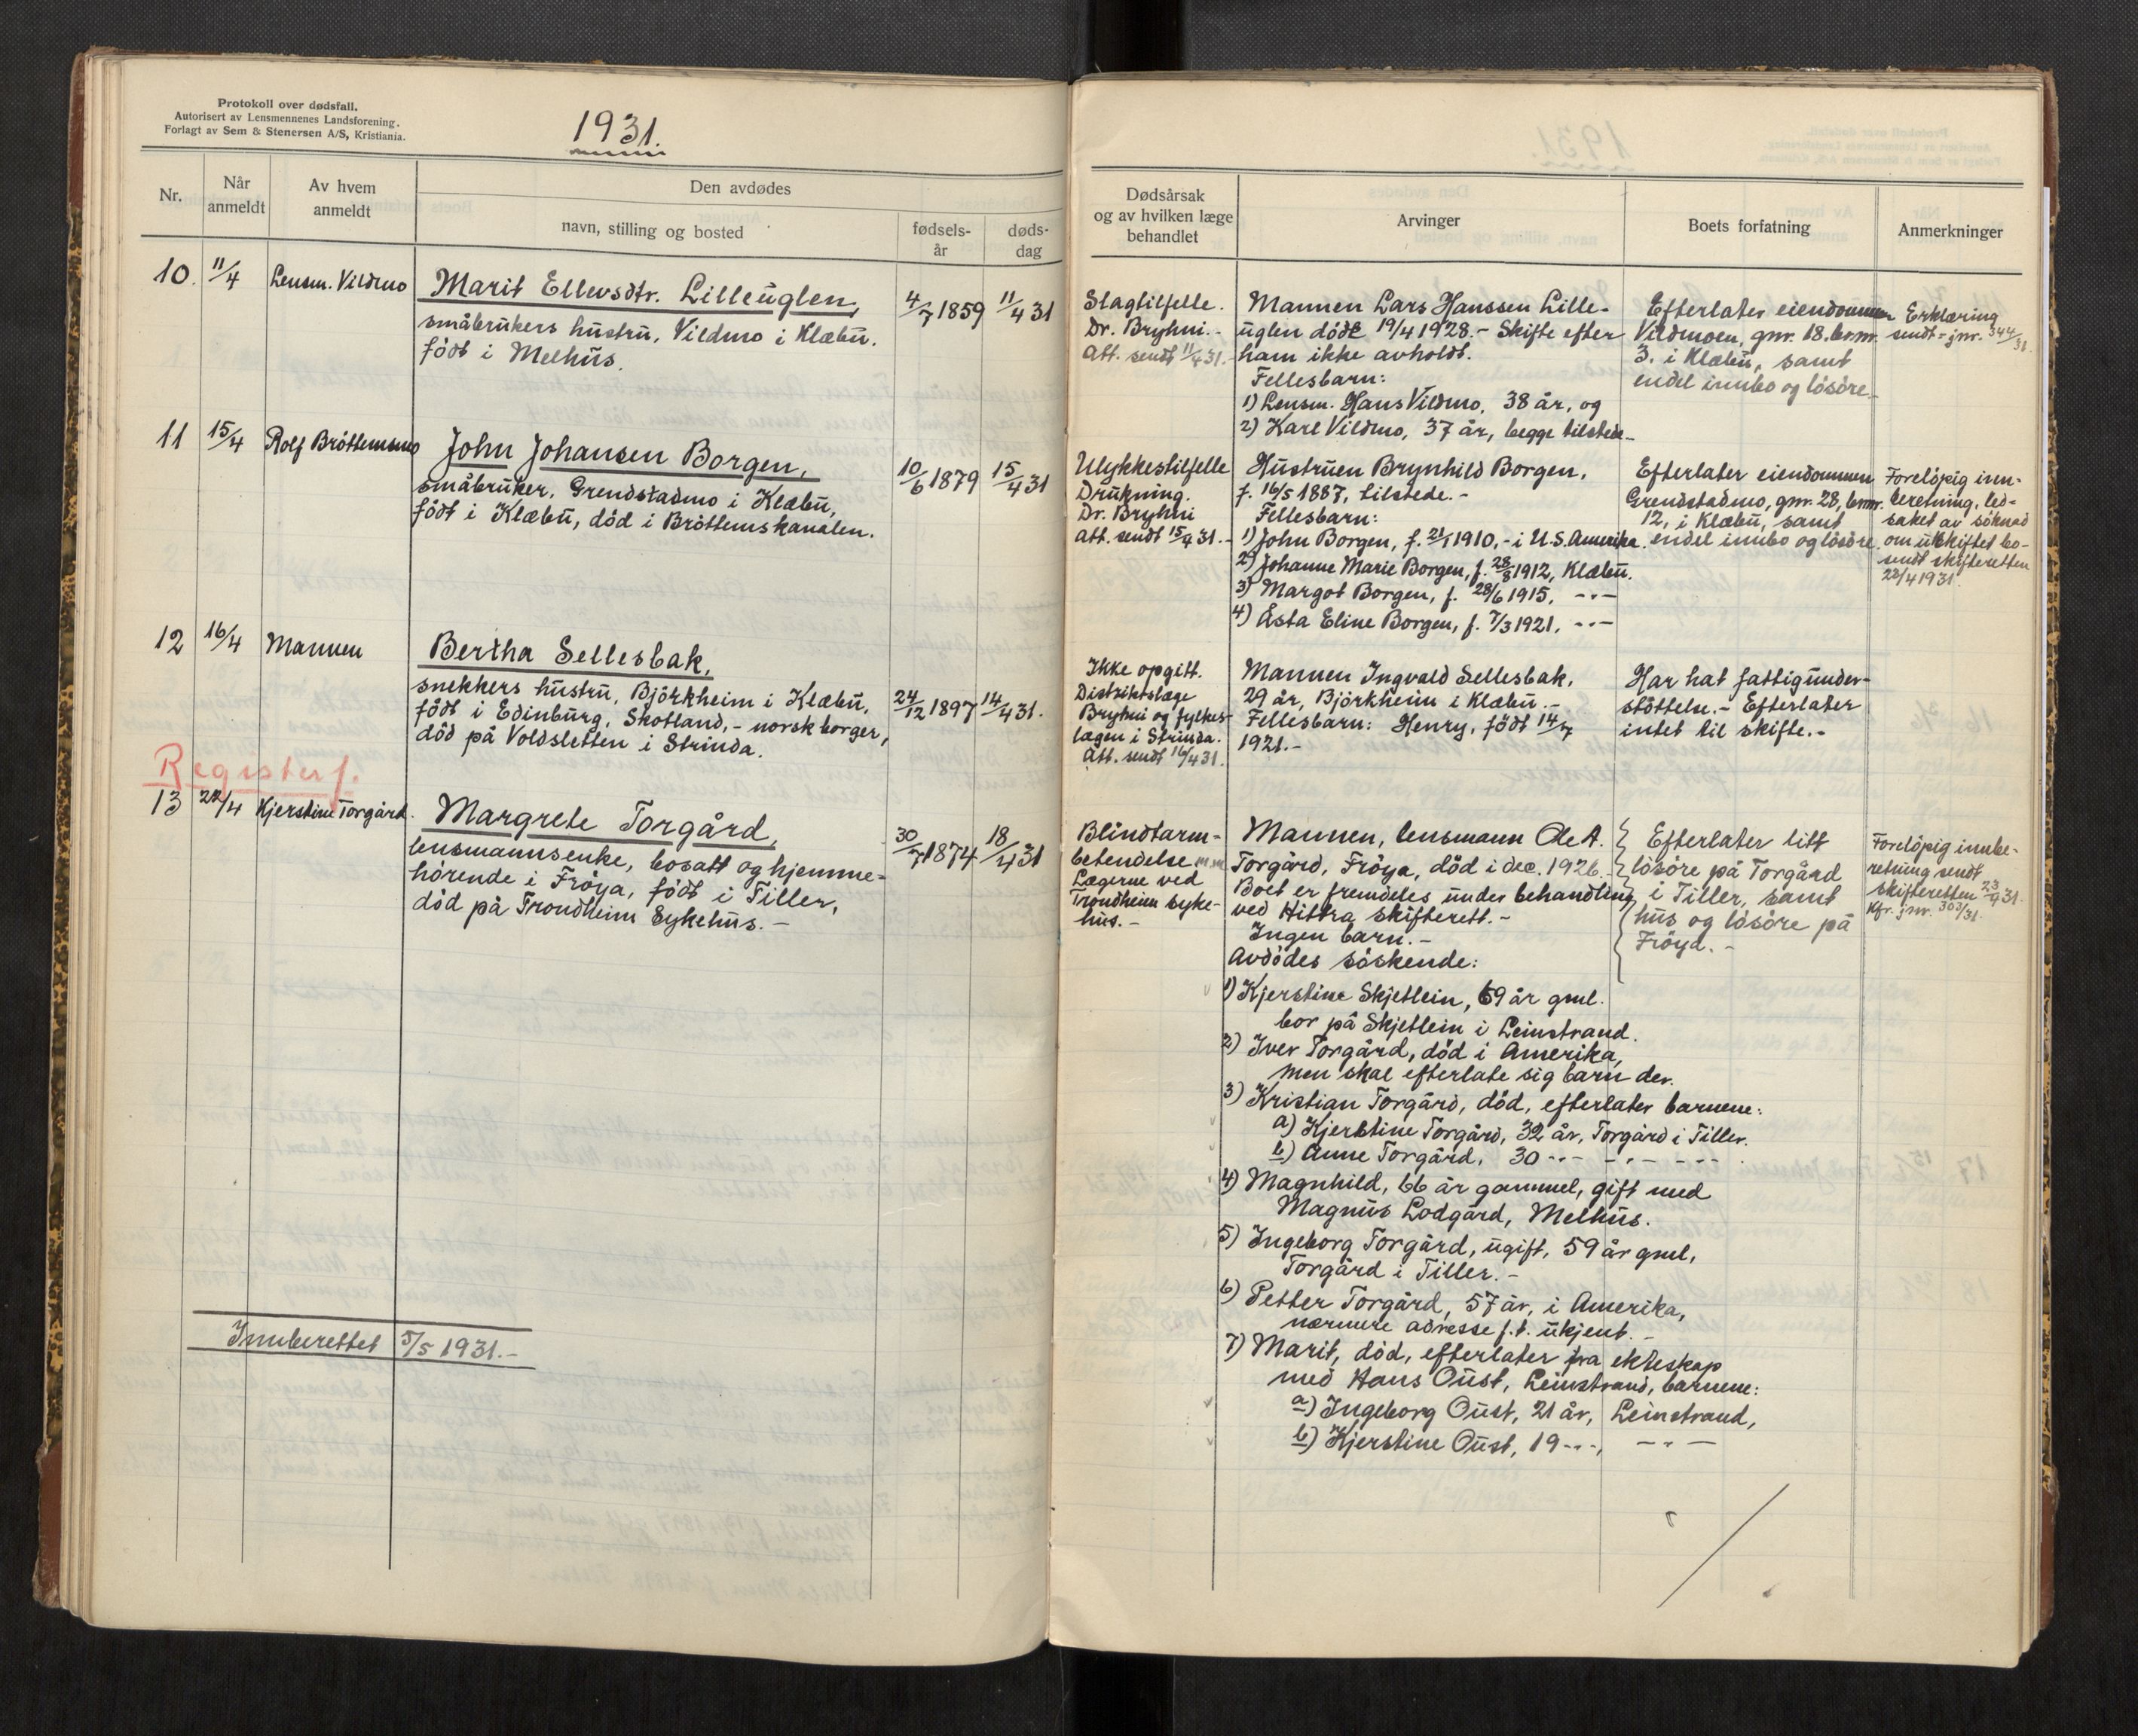 Protokoll over dødsfall.
Autorisert av Lensmennenes Landsforening.
Forlagt av Sem & Stenersen A/S, Kristiania.
1931.
Nr.
Når anmeldt
Av hvem anmeldt
Den avdødes
navn, stilling og bosted
fødsels-år
døds-dag
Dødsårsak
og av hvilken læge
behandlet
Arvinger
Boets forfatning
Anmerkninger
10. 11/4 Lensm. Vildmo
Marit Ellevsdtr. Lilleuglen,
småbrukers hustru, Vildmo i Klæbu,
født i Melhus.
4/7 1859 11/4 31
Slagtilfelle.
Dr. Bryhni.-
Att. sendt 11/4 31.-
Mannen Lars Hanssen Lille-
uglen döde 19/4 1928.- Skifte efter
ham ikke avholdt.
Fellesbarn:
1) Lensm. Hans Vildmo, 38 år, og
2) Karl Vildmo, 37 år, begge tilstede.-
Efterlater eiendommen
Vildmoen, gnr. 18. brnr.
3. i Klæbu, samt
endel innbo og lösöre.-
Erklæring
sendt - jnr. 344/31.
11 15/4 Rolf Bröttemsmo
John Johansen Borgen,
småbruker, Grendstadmo i Klæbu,
födt i Klæbu, död i Bröttemskanalen.
10/6 1879 15/4 31
Ulykkestilfelle
Drukning.
Dr. Bryhni
Att. sendt 15/4 31.-
Hustruen Brynhild Borgen,
f. 16/5 1887, tilstede.-
Fellesbarn:
1) John Borgen, f. 21/1 1910,- i U.S. Amerika.
2) Johanne Marie Borgen, f. 28/8 1912, Klæbu.
3) Margot Borgen, f. 28/6 1915, -"-
4) Åsta Eline Borgen, f. 7/3 1921, -"-
Efterlater eiendommen
Grendstadmo, gnr. 28, brnr.
12, i Klæbu, samt
endel innbo og lösöre.
Forelöpig inn-
beretning, led-
saket av söknad
om uskiftet bo-
sendt skifteretten
22/4 1931.
12 16/4 Mannen
Bertha Sellesbak,
snekkers hustru, Björkheim i Klæbu,
födt i Edinburg, Skotland,- norsk borger,
död på Voldsletten i Strinda.
24/12 1897 14/4 31.
Ikke opgitt.
Distriktslæge
Bryhni og fylkes-
lægen i Strinda.
Att. sendt 16/4 31.
Mannen Ingvald Sellesbak,
29 år, Björkheim i Klæbu.-
Fellesbarn: Henry, födt 14/7
1921.-
Har hat fattigunder-
stöttelse.- Efterlater
intet til skifte.-
Registerf.
13 22/4 Kjerstine Torgård.
Margrete Torgård,
lensmannsenke, bosatt og hjemme-
hörende i Fröya, födt i Tiller,
död på Trondheim Sykehus.-
30/7 1874 18/4 31
Blindtarm-
betendelse m.m.
Lægerne ved
Trondheim syke-
hus.-
Mannen, lensmann Ole A.
Torgård, Fröya, död i dec. 1926.-
Boet er fremdeles under behandling
ved Hittra skifterett.-
Ingen barn.-
Avdödes söskende:
1) Kjerstine Skjetlein, 69 år gml.
bor på Skjetlein i Leinstrand.
2) Iver Torgård, död i Amerika,
men skal efterlate sig barn der.
3) Kristian Torgård, död, efterlater barnene:
a) Kjerstine Torgård, 32 år, Torgård i Tiller.
b) Anne Torgård, 30 -"- -"- -"-
4) Magnhild, 66 år gammel, gift med
Magnus Lodgård, Melhus.
5) Ingeborg Torgård, ugift, 59 år gml,
Torgård i Tiller.-
6) Petter Torgård, 57 år, i Amerika,
nærmere adresse f.t. ukjent.-
7) Marit, död, efterlater fra ekteskap
med Hans Oust, Leinstrand, barnene:
a) Ingeborg Oust, 21 år, Leinstrand,
b) Kjerstine Oust, 19 -"-, -"-
Efterlater litt
lösöre på Torgård
i Tiller, samt
hus og lösöre på
Fröya.-
Forelöpig innbe-
retning sendt
skifteretten 23/4 31.
Kfr. jnr. 303/31
Innberettet 5/5 1931.-